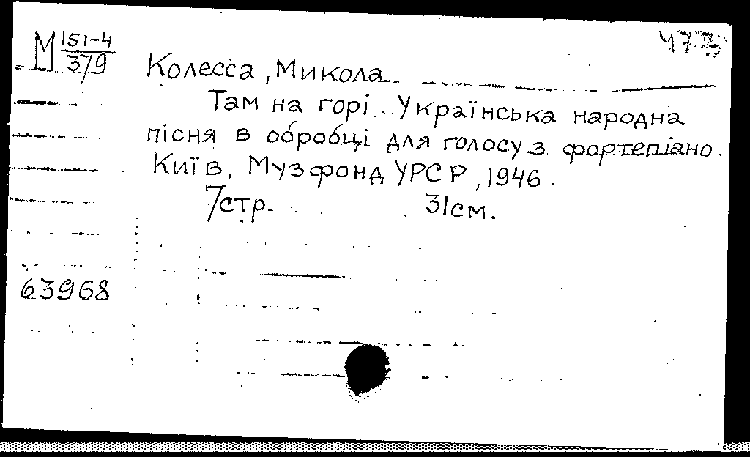 М 151-4
379
Колесса, Микола
Там на горі. Українська народна
пісня в обробці для голосу з фортепіано.
Київ, Музфонд УРСР, 1946.
7стр. 31см.
63968